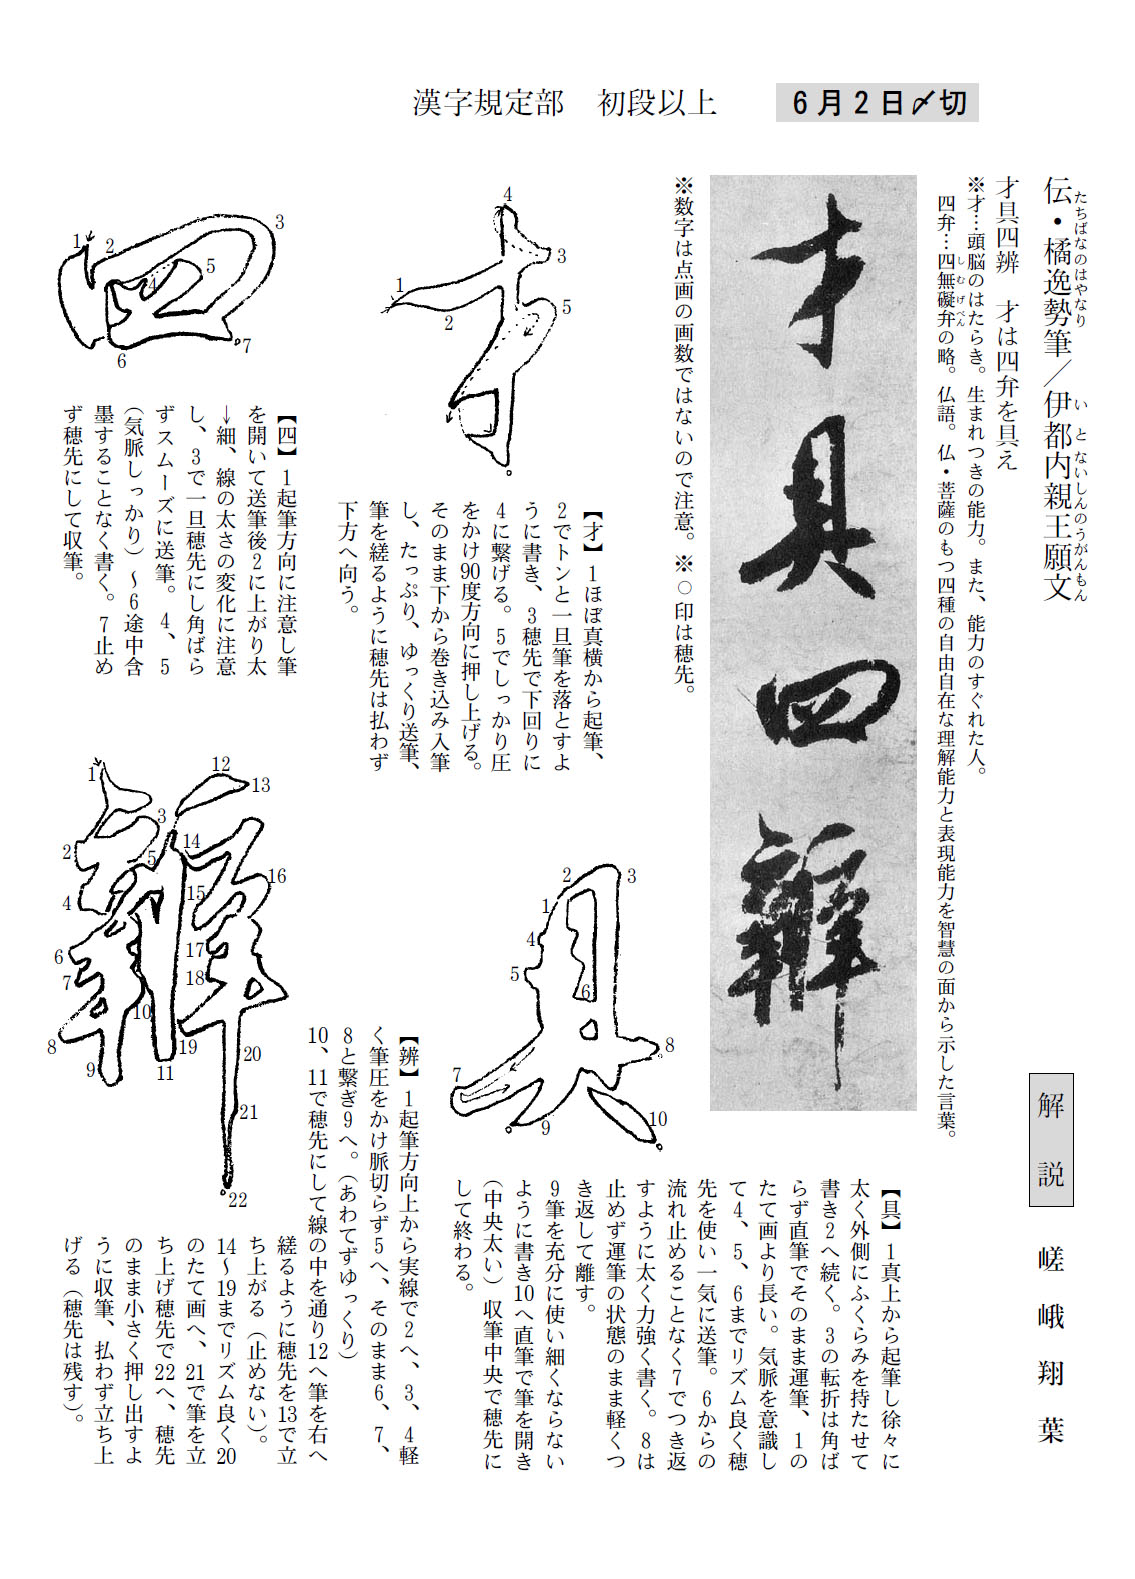 漢字規定部　初段以上
６月２日〆切
伝・橘逸勢筆／伊都内親王願文
たちばなのはやなり
いとないしんのうがんもん
才具四辨　才は四弁を具え
※才…頭脳のはたらき。生まれつきの能力。また、能力のすぐれた人。
四弁…四無礙弁の略。仏語。仏・菩薩のもつ四種の自由自在な理解能力と表現能力を智慧の面から示した言葉。
しむげべん
解説
嵯峨翔葉
才具四辨
※数字は点画の画数ではないので注意。※○印は穂先。
4
3
5
1
2
【才】1ほぼ真横から起筆、
2でトンと一旦筆を落とすよ
うに書き、3穂先で下回りに
4に繋げる。5でしっかり圧
をかけ90度方向に押し上げる。
そのまま下から巻き込み入筆
し、たっぷり、ゆっくり送筆、
筆を縒るように穂先は払わず
下方へ向う。
1
2
3
4
5
6
7
【四】1起筆方向に注意し筆
を開いて送筆後2に上がり太
→細、線の太さの変化に注意
し、3で一旦穂先にし角ばら
ずスムーズに送筆。4、5
（気脈しっかり）～6途中含
墨することなく書く。7止め
ず穂先にして収筆。
2
3
1
4
5
6
8
7
9
10
【具】1真上から起筆し徐々に
太く外側にふくらみを持たせて
書き2へ続く。3の転折は角ば
らず直筆でそのまま運筆、1の
たて画より長い。気脈を意識し
て4、5、6までリズム良く穂
先を使い一気に送筆。6からの
流れ止めることなく7でつき返
すように太く力強く書く。8は
止めず運筆の状態のまま軽くつ
き返して離す。
9筆を充分に使い細くならない
ように書き10へ直筆で筆を開き
（中央太い）収筆中央で穂先に
して終わる。
1
12
13
3
2
5
14
4
15
16
6
17
7
18
10
8
19
20
9
11
21
22
【辨】1起筆方向上から実線で2へ、3、4軽
く筆圧をかけ脈切らず5へ、そのまま6、7、
8と繋ぎ9へ。（あわてずゆっくり）
10、11で穂先にして線の中を通り12へ筆を右へ
縒るように穂先を13で立
ち上がる（止めない）。
14～19までリズム良く20
のたて画へ、21で筆を立
ち上げ穂先で22へ、穂先
のまま小さく押し出すよ
うに収筆、払わず立ち上
げる（穂先は残す）。